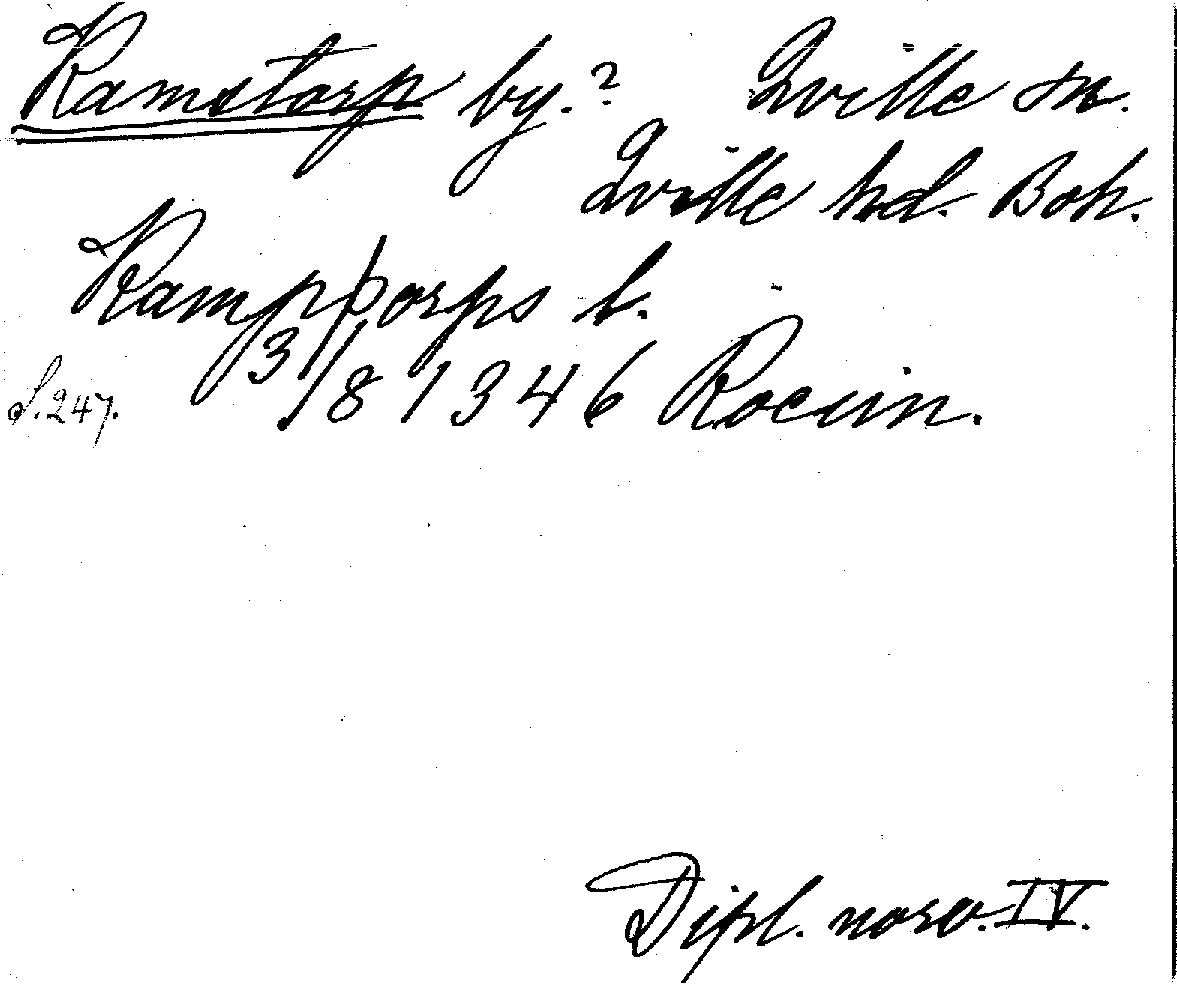 Ramstorp by.? Qville sn.
Qville hd. Boh.
Rampþorps l.
S. 247. 31/8 1346 Rocun.
Dipl. norv. IV.